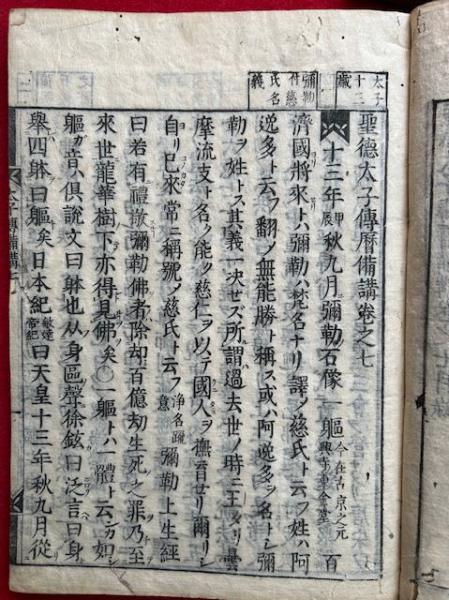 太子
十三
歳
彌勒
付慈
氏名
義
聖德太子傳曆備講卷之七
十三年甲辰秋九月彌勒石像一軀今在古京之元興寺東金堂百
濟國將來トハ彌勒ハ梵名ナリ譯ノ慈氏ト云フ姓ハ阿
逸多ト云フ翻ノ無能勝ト稱ス或ハ阿逸多ヲ名トシ彌
勒ヲ姓トス其義一決セズ所謂過去世ノ時ニ王タリ曇
摩流支ト名ク能ク慈仁ヲ以テ國人ヲ撫育セリ爾リシ
自リ已來常ニ稱號ノ慈氏ト云フ淨名疏意彌勒上生經
曰若有禮敬彌勒佛者除却百億劫生死之罪乃至
來世龍華樹下亦得見佛矣〇一軀トハ一體ト云ンカ如シ
軀音俱說文曰躰也从身區聲徐鉉曰泛言曰身
舉四躰曰軀矣日本紀敏達帝紀曰天皇十三年秋九月從
太子傳備講